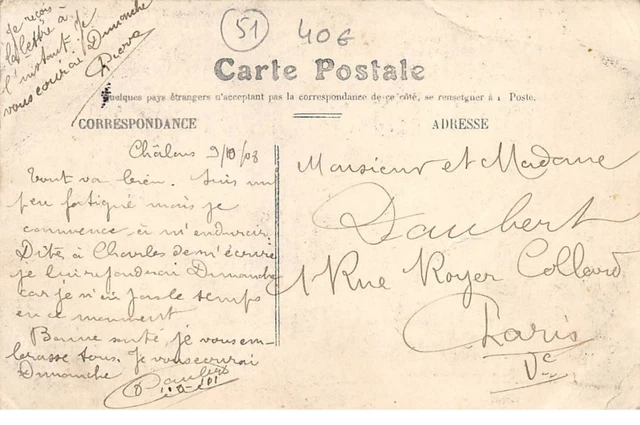 Je reçois
la lettre à
l'instant. Je
vous écrirai Dimanche
Pierre
51
40€
Carte Postale
Quelques pays étrangers n'acceptant pas la correspondance de ce côté, se renseigner à la Poste.
CORRESPONDANCE
ADRESSE
Châlons 9/10/08
Tout va bien. Suis un
peu fatigué mais je
commence à m'endurcir
Dites à Charles de m'écrire
je lui répondrai Dimanche
car je n'ai pas le temps
en ce moment
Bonne santé, je vous em-
brasse tous. Je vous écrirai
Dimanche
Daubert
Monsieur et Madame
Daubert
1 Rue Royer Collard
Paris
Ve